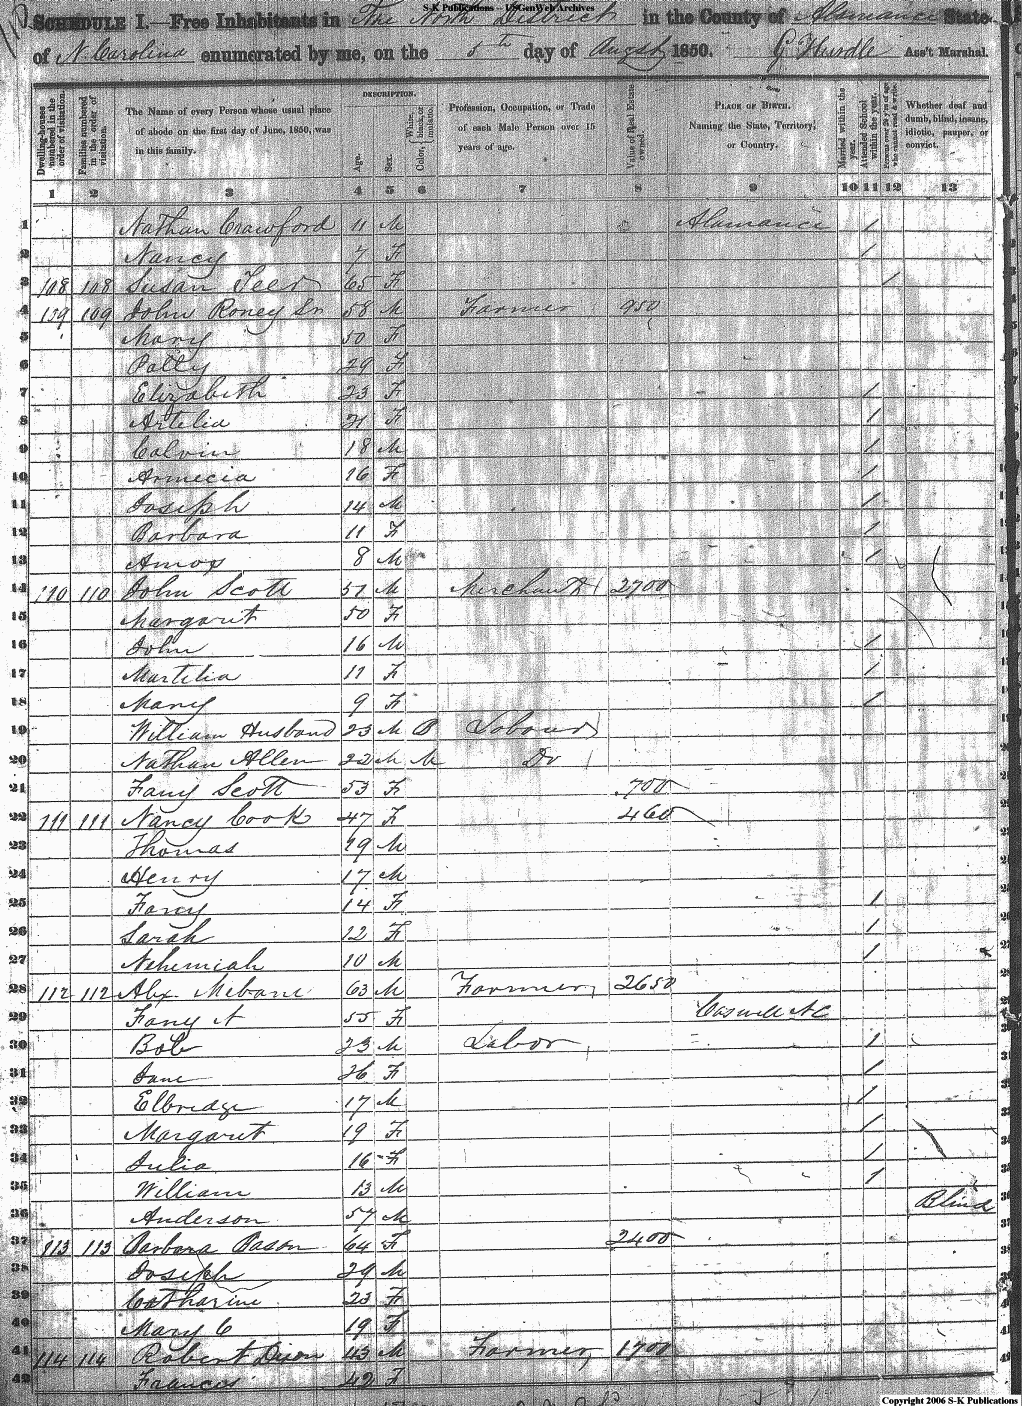 S-K Publications - USGenWeb Archives
SCHEDULE I.—Free Inhabitants in The North District in the County of Alamance State
of N. Carolina enumerated by me, on the 5th day of Augst 1850. G Hurdle Ass't Marshal.
Dwelling-houses numbered in the order of visitation.
Families numbered in the order of visitation.
The Name of every Person whose usual place of abode on the first day of June, 1850, was in this family.
DESCRIPTION.
Age.
Sex.
Color, White, black, or mulatto.
Profession, Occupation, or Trade of each Male Person over 15 years of age.
Value of Real Estate owned.
PLACE OF BIRTH. Naming the State, Territory, or Country.
Married within the year.
Attended School within the year.
Persons over 20 y'rs of age who cannot read & write.
Whether deaf and dumb, blind, insane, idiotic, pauper, or convict.
1 2 3 4 5 6 7 8 9 10 11 12 13
1 Nathan Crawford 11 M Alamance 1
2 Nancy 7 F 1
3 108 108 Susan Teer 65 F 1
4 109 109 John Roney Sr 58 M Farmer 950
5 Mary 50 F
6 Patty 29 F
7 Elizabeth 23 F 1
8 Artelia 21 F 1
9 Calvin 18 M 1
10 Armecia 16 F 1
11 Joseph 14 M 1
12 Barbara 11 F 1
13 Amos 8 M 1
14 110 110 John Scott 57 M Merchant 2700
15 Margaret 50 F
16 John 16 M 1
17 Martelia 11 F 1
18 Mary 9 F 1
19 William Husband 23 M B Labour
20 Nathan Allen 22 M M Do
21 Fany Scott 53 F 700
22 111 111 Nancy Cook 47 F 460
23 Thomas 19 M
24 Henry 17 M
25 Fancy 14 F 1
26 Sarah 12 F 1
27 Nehemiah 10 M 1
28 112 112 Alex. Mebane 63 M Farmer 2650
29 Fany A 55 F Caswell NC
30 Bob 23 M Labor 1
31 Jane 26 F 1
32 Elbridge 17 M 1
33 Margaret 19 F 1
34 Julia 16 F 1
35 William 13 M 1
36 Anderson 57 M Blind
37 113 113 Barbara Bason 64 F 2400
38 Joseph 29 M
39 Catharine 23 F
40 Mary C 19 F
41 114 114 Robert Dixon 43 M Farmer 1700
42 Frances 42 F
Copyright 2006 S-K Publications